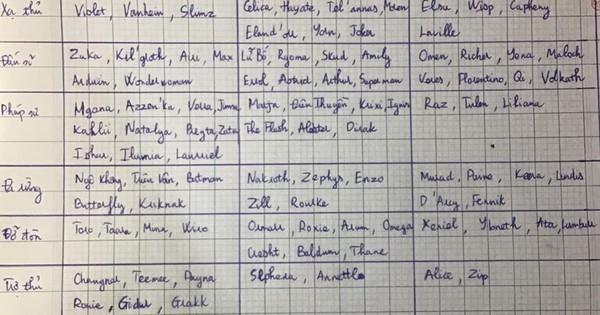 Xạ thủ Violet, Vanhein, Slimz Celica, Hayate, Tel'annas, Moren Elsu, Wisp, Capheny
Eland'orr, Yorn, Joker Laville
Đấu sĩ Zuka, Kil'groth, Airi, Max Lữ Bố, Ryoma, Skud, Amily Omen, Richter, Yena, Maloch
Arduin, Wonderwoman Errol, Astrid, Arthur, Superman Veres, Florentino, Qi, Volkath
Pháp sư Mgana, Azzen'ka, Veera, Jinna Marja, Điêu Thuyền, Krixi, Ignis Raz, Tulen, Liliana
Kahlii, Natalya, Preyta, Zata The Flash, Aleister, Dirak
Ishar, Ilumia, Lauriel
Đi rừng Ngộ Không, Triệu Vân, Batman Nakroth, Zephys, Enzo Murad, Paine, Keera, Lindis
Butterfly, Kriknak Zill, Rourke D'Arcy, Fennik
Đỡ đòn Toro, Taara, Mina, Wiro Ormarr, Roxie, Arum, Omega Xeniel, Y'bneth, Ata, Lumburr
Cresht, Baldum, Thane
Trợ thủ Chaugnar, Teemee, Payna Sephera, Annette Alice, Zip
Rouie, Gildur, Grakk